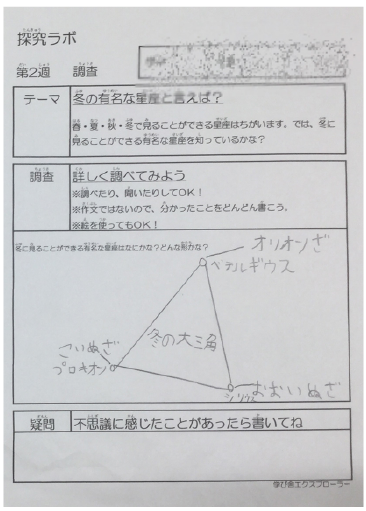 探究ラボ
第2週 調査
テーマ 冬の有名な星座と言えば?
春・夏・秋・冬で見ることができる星座はちがいます。では、冬に
見ることができる有名な星座を知っているかな?
調査 詳しく調べてみよう
※調べたり、聞いたりしてOK!
※作文ではないので、分かったことをどんどん書こう。
※絵を使ってもOK!
冬に見ることができる有名な星座はなにかな?どんな形かな?
オリオンざ
ベテルギウス
冬の大三角
こいぬざ
プロキオン
おおいぬざ
シリウス
疑問 不思議に感じたことがあったら書いてね
学び舎エクスプローラー